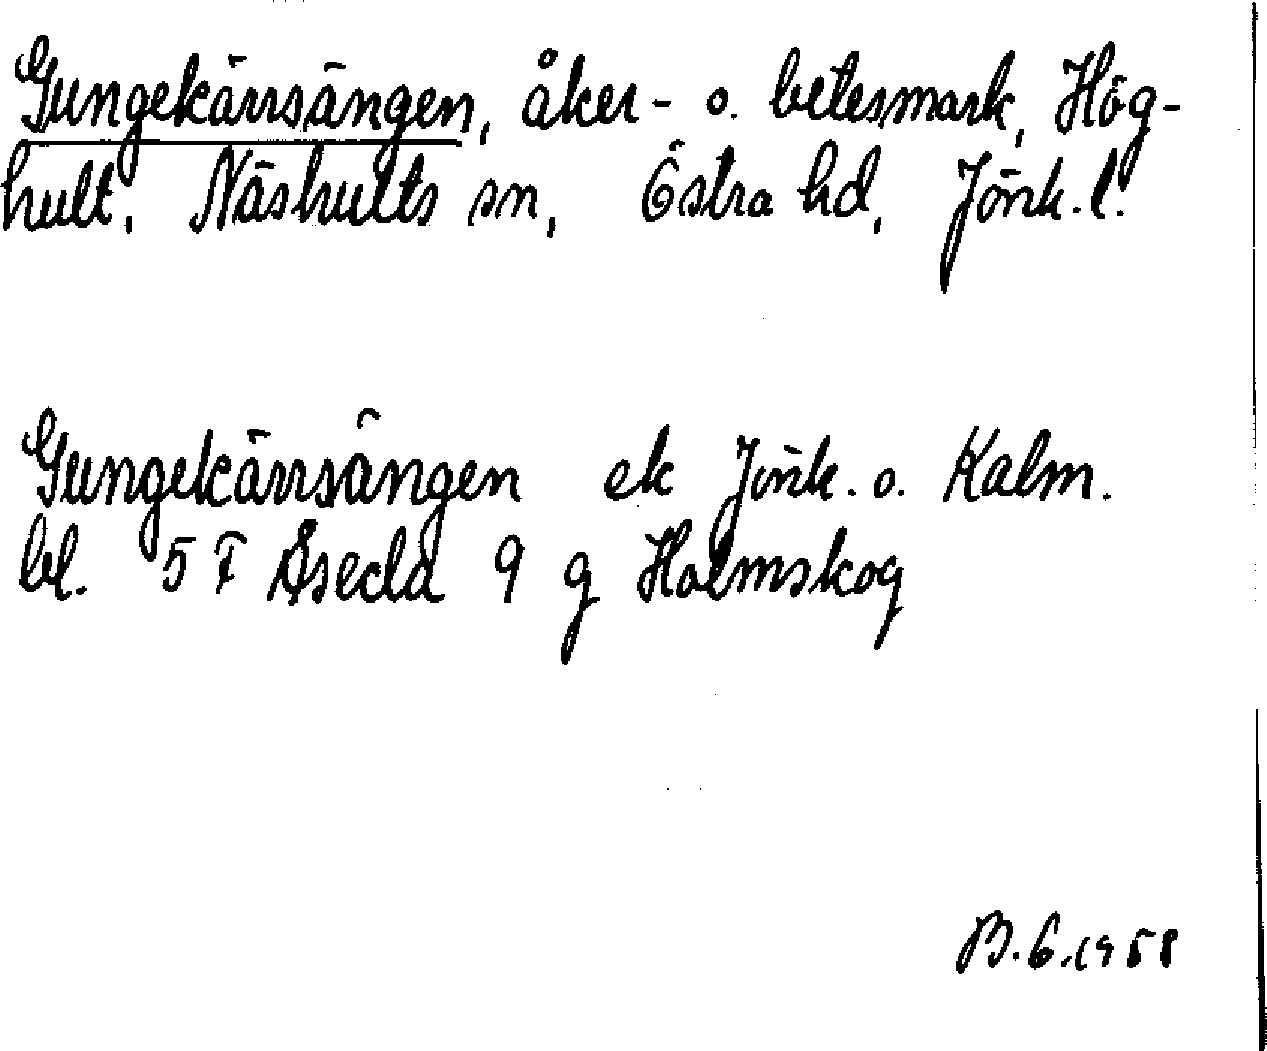 Gungekärrsängen, åker- o. betesmark, Hög-
hult, Näshults sn, Östra hd, Jönk.l.
Gungekärrsängen ek Jönk. o. Kalm.
bl. 5 F Åseda 9 g Holmskog
B.G.1958